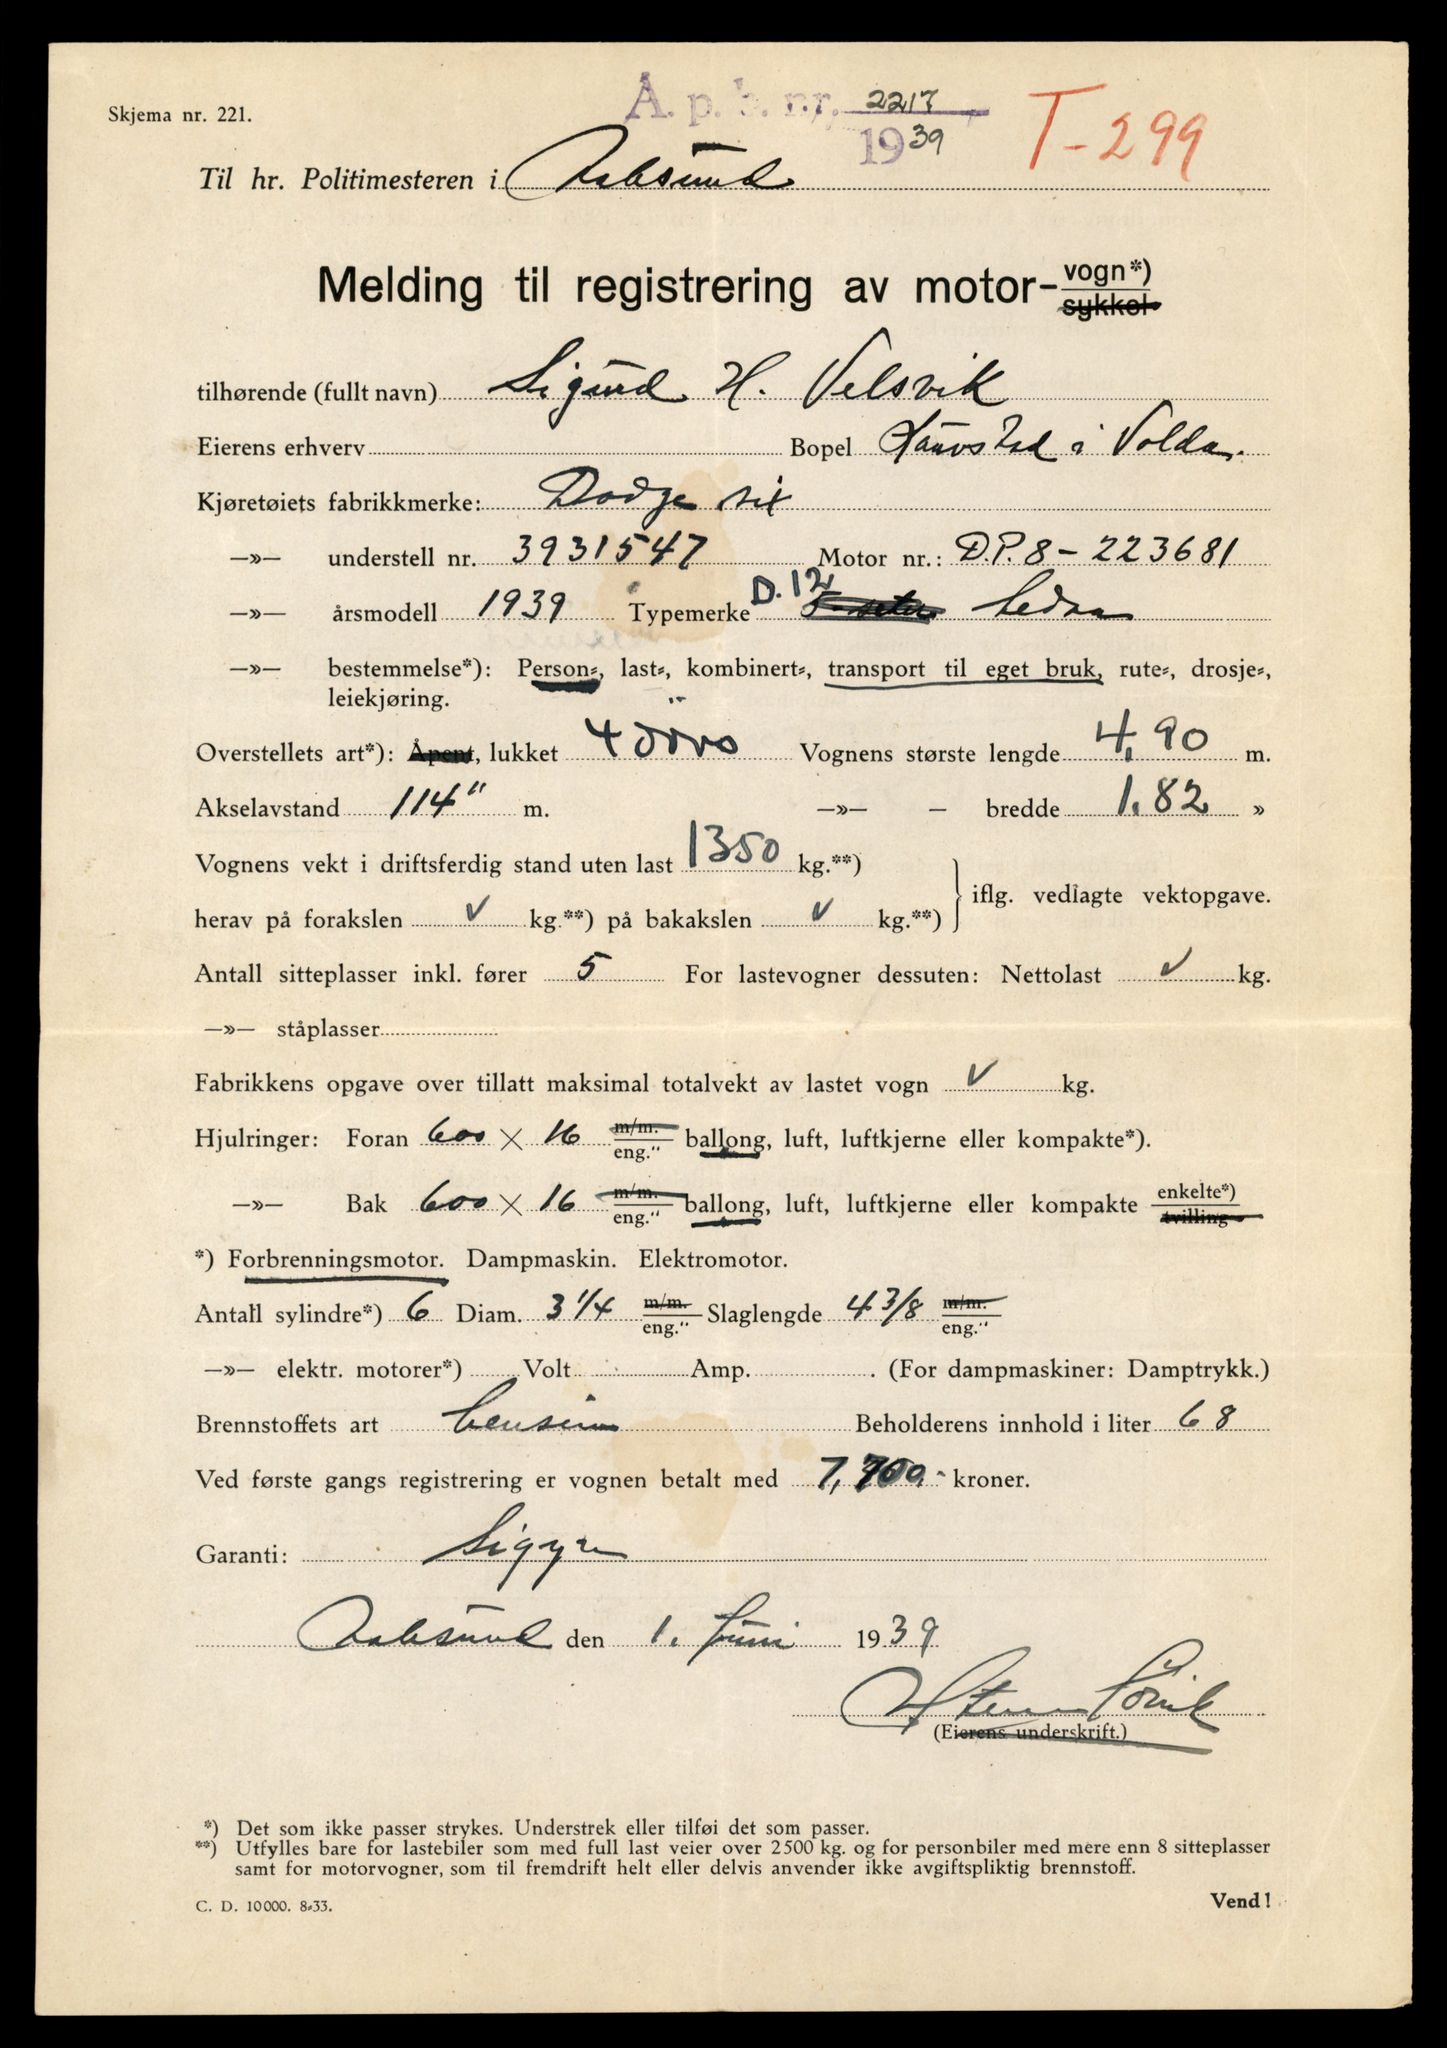 Skjema nr. 221.
A. p. b. nr. 2217
1939
T-299
Til hr. Politimesteren i Aalesund
Melding til registrering av motor- vogn*)
sykkel
tilhørende (fullt navn) Sigurd H. Velsvik
Eierens erhverv Bopel Lauvstad i Volda.
Kjøretøiets fabrikkmerke: Dodge six
—»— understell nr. 3931547 Motor nr.: D.P. 8-223681
—»— årsmodell 1939 Typemerke D.12 5-seter Sedan
—»— bestemmelse*): Person-, last-, kombinert-, transport til eget bruk, rute-, drosje-,
leiekjøring.
Overstellets art*): Åpent, lukket 4 dörs Vognens største lengde 4,90 m.
Akselavstand 114" m. —»— – bredde 1.82 »
Vognens vekt i driftsferdig stand uten last 1350 kg.**)
herav på forakslen ✓ kg.**) på bakakslen ✓ kg.**) } iflg. vedlagte vektopgave.
Antall sitteplasser inkl. fører 5 For lastevogner dessuten: Nettolast ✓ kg.
—»— ståplasser
Fabrikkens opgave over tillatt maksimal totalvekt av lastet vogn ✓ kg.
Hjulringer: Foran 600 × 16 m/m. eng." ballong, luft, luftkjerne eller kompakte*).
—»— Bak 600 × 16 m/m. eng." ballong, luft, luftkjerne eller kompakte enkelte*) tvilling
*) Forbrenningsmotor. Dampmaskin. Elektromotor.
Antall sylindre*) 6 Diam. 3 1/4 m/m. eng." Slaglengde 4 3/8 m/m. eng."
—»— elektr. motorer*) Volt Amp. . (For dampmaskiner: Damptrykk.)
Brennstoffets art bensin Beholderens innhold i liter 68
Ved første gangs registrering er vognen betalt med 7,700.- kroner.
Garanti: Sigyn
Aalesund den 1. Juni 1939
(Eierens underskrift.)
*) Det som ikke passer strykes. Understrek eller tilføi det som passer.
**) Utfylles bare for lastebiler som med full last veier over 2500 kg. og for personbiler med mere enn 8 sitteplasser
samt for motorvogner, som til fremdrift helt eller delvis anvender ikke avgiftspliktig brennstoff.
C. D. 10000. 8-33.
Vend!